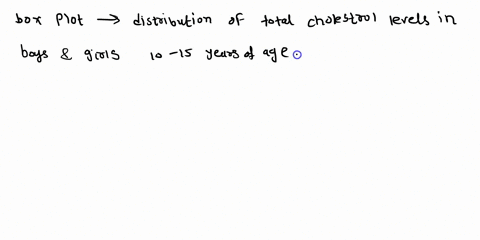 box plot → distribution of total cholestrol levels in
boys & girls 10-15 years of age.